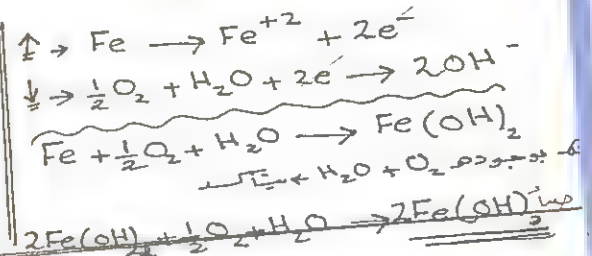 Fe → Fe⁺² + 2e⁻
½O₂ + H₂O + 2e⁻ → 2OH⁻
Fe + ½O₂ + H₂O → Fe(OH)₂
H₂O + O₂
2Fe(OH)₂ + ½O₂ + H₂O → 2Fe(OH)₃